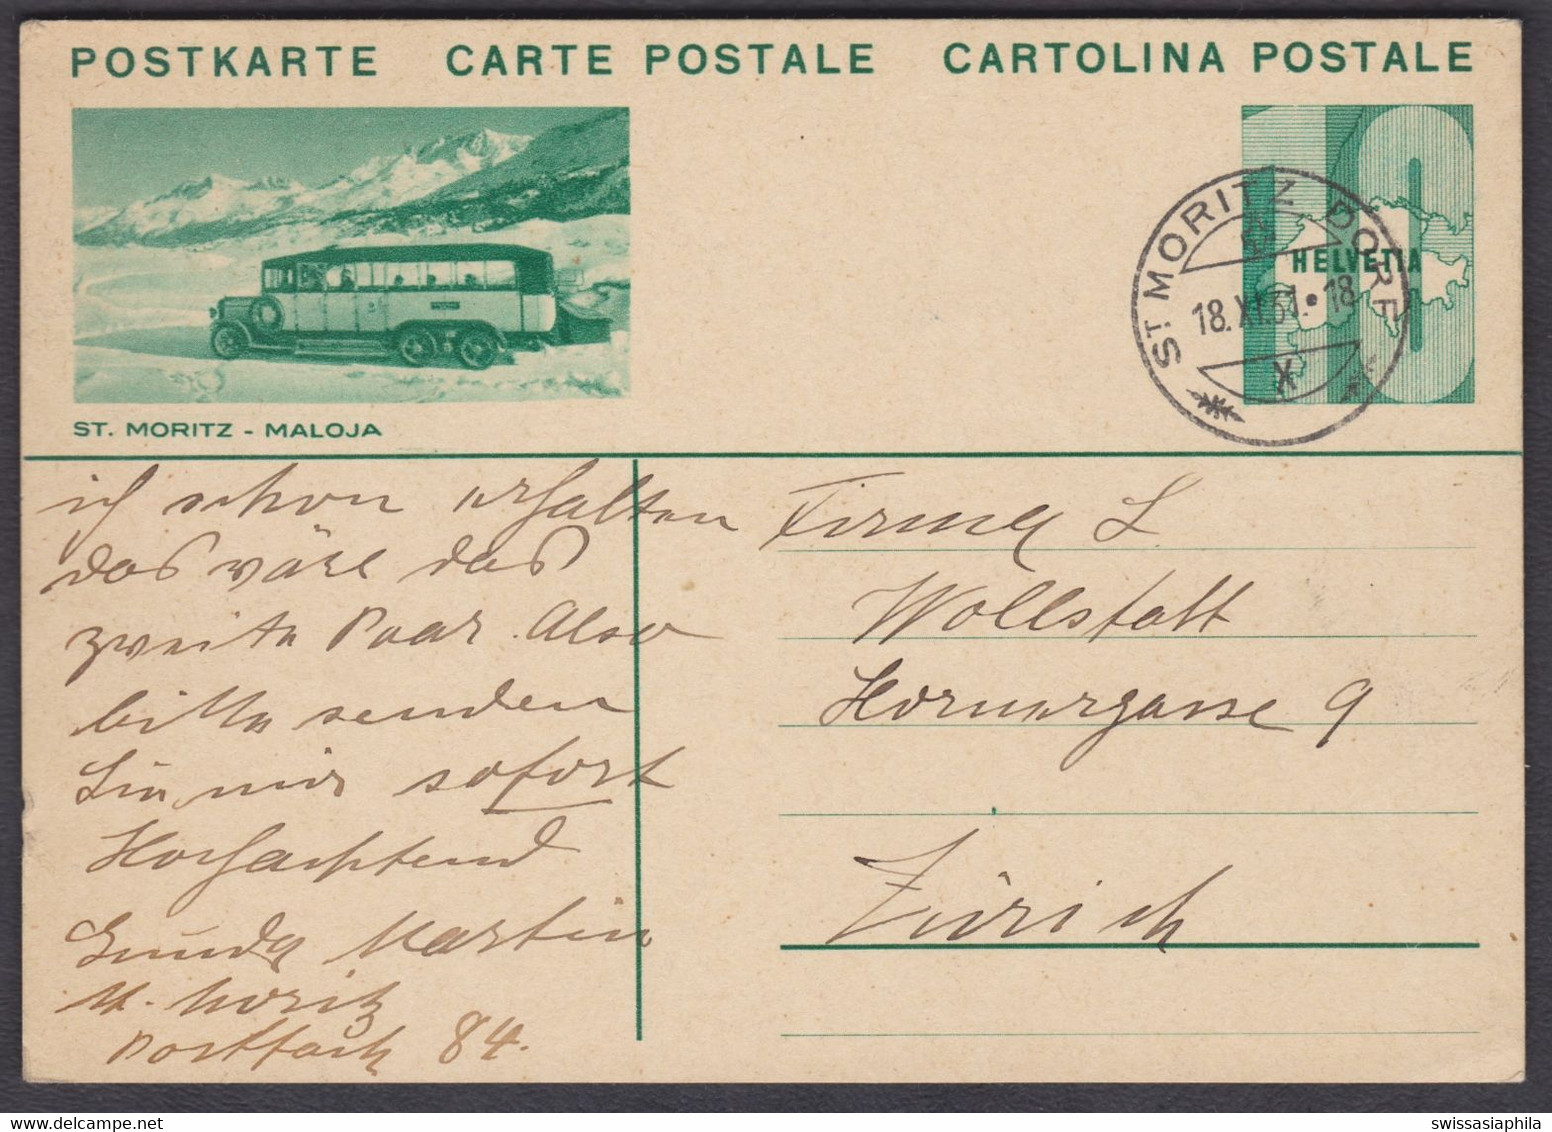 POSTKARTE CARTE POSTALE CARTOLINA POSTALE
ST. MORITZ - MALOJA
HELVETIA
10
ST. MORITZ DORF
18.XI.31.•18
X
ich schon erhalten
das wäre das
zweite Paar. Also
bitte senden
Sie mir sofort
Hochachtend
Martin
St. Moritz
Postfach 84.
Firma L
Wollstatt
Hornergasse 9
Zürich
swissasiaphila